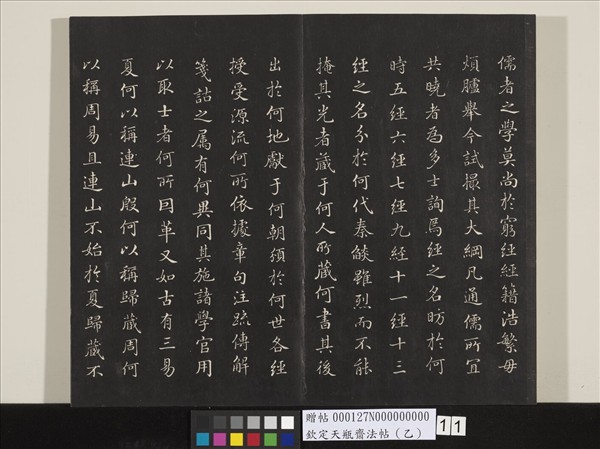 儒者之學莫尚於窮經經籍浩繁毋
煩臚舉今試撮其大綱凡通儒所宜
共曉者為多士詢焉經之名昉於何
時五經六經七經九經十一經十三
經之名分於何代秦燄雖烈而不能
掩其光者藏于何人所藏何書其後
出於何地獻于何朝頒於何世各經
授受源流何所依據章句注疏傳解
箋詁之屬有何異同其施諸學官用
以取士者何所因革又如古有三易
夏何以稱連山殷何以稱歸藏周何
以稱周易且連山不始於夏歸藏不
贈帖 000127N000000000
欽定天瓶齋法帖(乙)
11